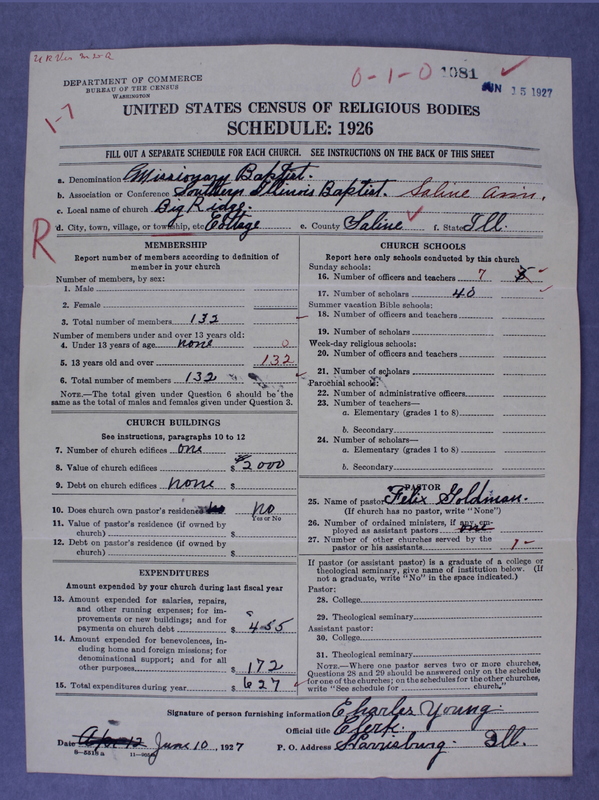 0-1-0 1081
JUN 15 1927
DEPARTMENT OF COMMERCE
BUREAU OF THE CENSUS
WASHINGTON
1-7
UNITED STATES CENSUS OF RELIGIOUS BODIES
SCHEDULE: 1926
FILL OUT A SEPARATE SCHEDULE FOR EACH CHURCH. SEE INSTRUCTIONS ON THE BACK OF THIS SHEET
a. Denomination Missionary Baptist.
b. Association or Conference Southern Illinois Baptist. Saline Assn.
c. Local name of church Big Ridge.
d. City, town, village, or township, etc. Cottage e. County Saline f. State Ill.
R
MEMBERSHIP
Report number of members according to definition of
member in your church
Number of members, by sex:
1. Male
2. Female
3. Total number of members 132
Number of members under and over 13 years old:
4. Under 13 years of age none 0
5. 13 years old and over 132
6. Total number of members 132
NOTE.—The total given under Question 6 should be the
same as the total of males and females given under Question 3.
CHURCH BUILDINGS
See instructions, paragraphs 10 to 12
7. Number of church edifices one
8. Value of church edifices $ 2000
9. Debt on church edifices none $
10. Does church own pastor's residence no
Yes or No
11. Value of pastor's residence (if owned by
church) $
12. Debt on pastor's residence (if owned by
church) $
EXPENDITURES
Amount expended by your church during last fiscal year
13. Amount expended for salaries, repairs,
and other running expenses; for im-
provements or new buildings; and for
payments on church debt $ 455
14. Amount expended for benevolences, in-
cluding home and foreign missions; for
denominational support; and for all
other purposes $ 172
15. Total expenditures during year $ 627
CHURCH SCHOOLS
Report here only schools conducted by this church
Sunday schools:
16. Number of officers and teachers 7 8
17. Number of scholars 40
Summer vacation Bible schools:
18. Number of officers and teachers
19. Number of scholars
Week-day religious schools:
20. Number of officers and teachers
21. Number of scholars
Parochial schools:
22. Number of administrative officers
23. Number of teachers—
a. Elementary (grades 1 to 8)
b. Secondary
24. Number of scholars—
a. Elementary (grades 1 to 8)
b. Secondary
PASTOR
25. Name of pastor Felix Goldman.
(If church has no pastor, write "None")
26. Number of ordained ministers, if any, em-
ployed as assistant pastors one
27. Number of other churches served by the
pastor or his assistants 1
If pastor (or assistant pastor) is a graduate of a college or
theological seminary, give name of institution below. (If
not a graduate, write "No" in the space indicated.)
Pastor:
28. College
29. Theological seminary
Assistant pastor:
30. College
31. Theological seminary
NOTE.—Where one pastor serves two or more churches,
Questions 28 and 29 should be answered only on the schedule
for one of the churches; on the schedules for the other churches,
write "See schedule for church."
Signature of person furnishing information Charles Young.
Official title Clerk.
Date Apr 12 June 10, 1927 P. O. Address Harrisburg. Ill.
8-5318a